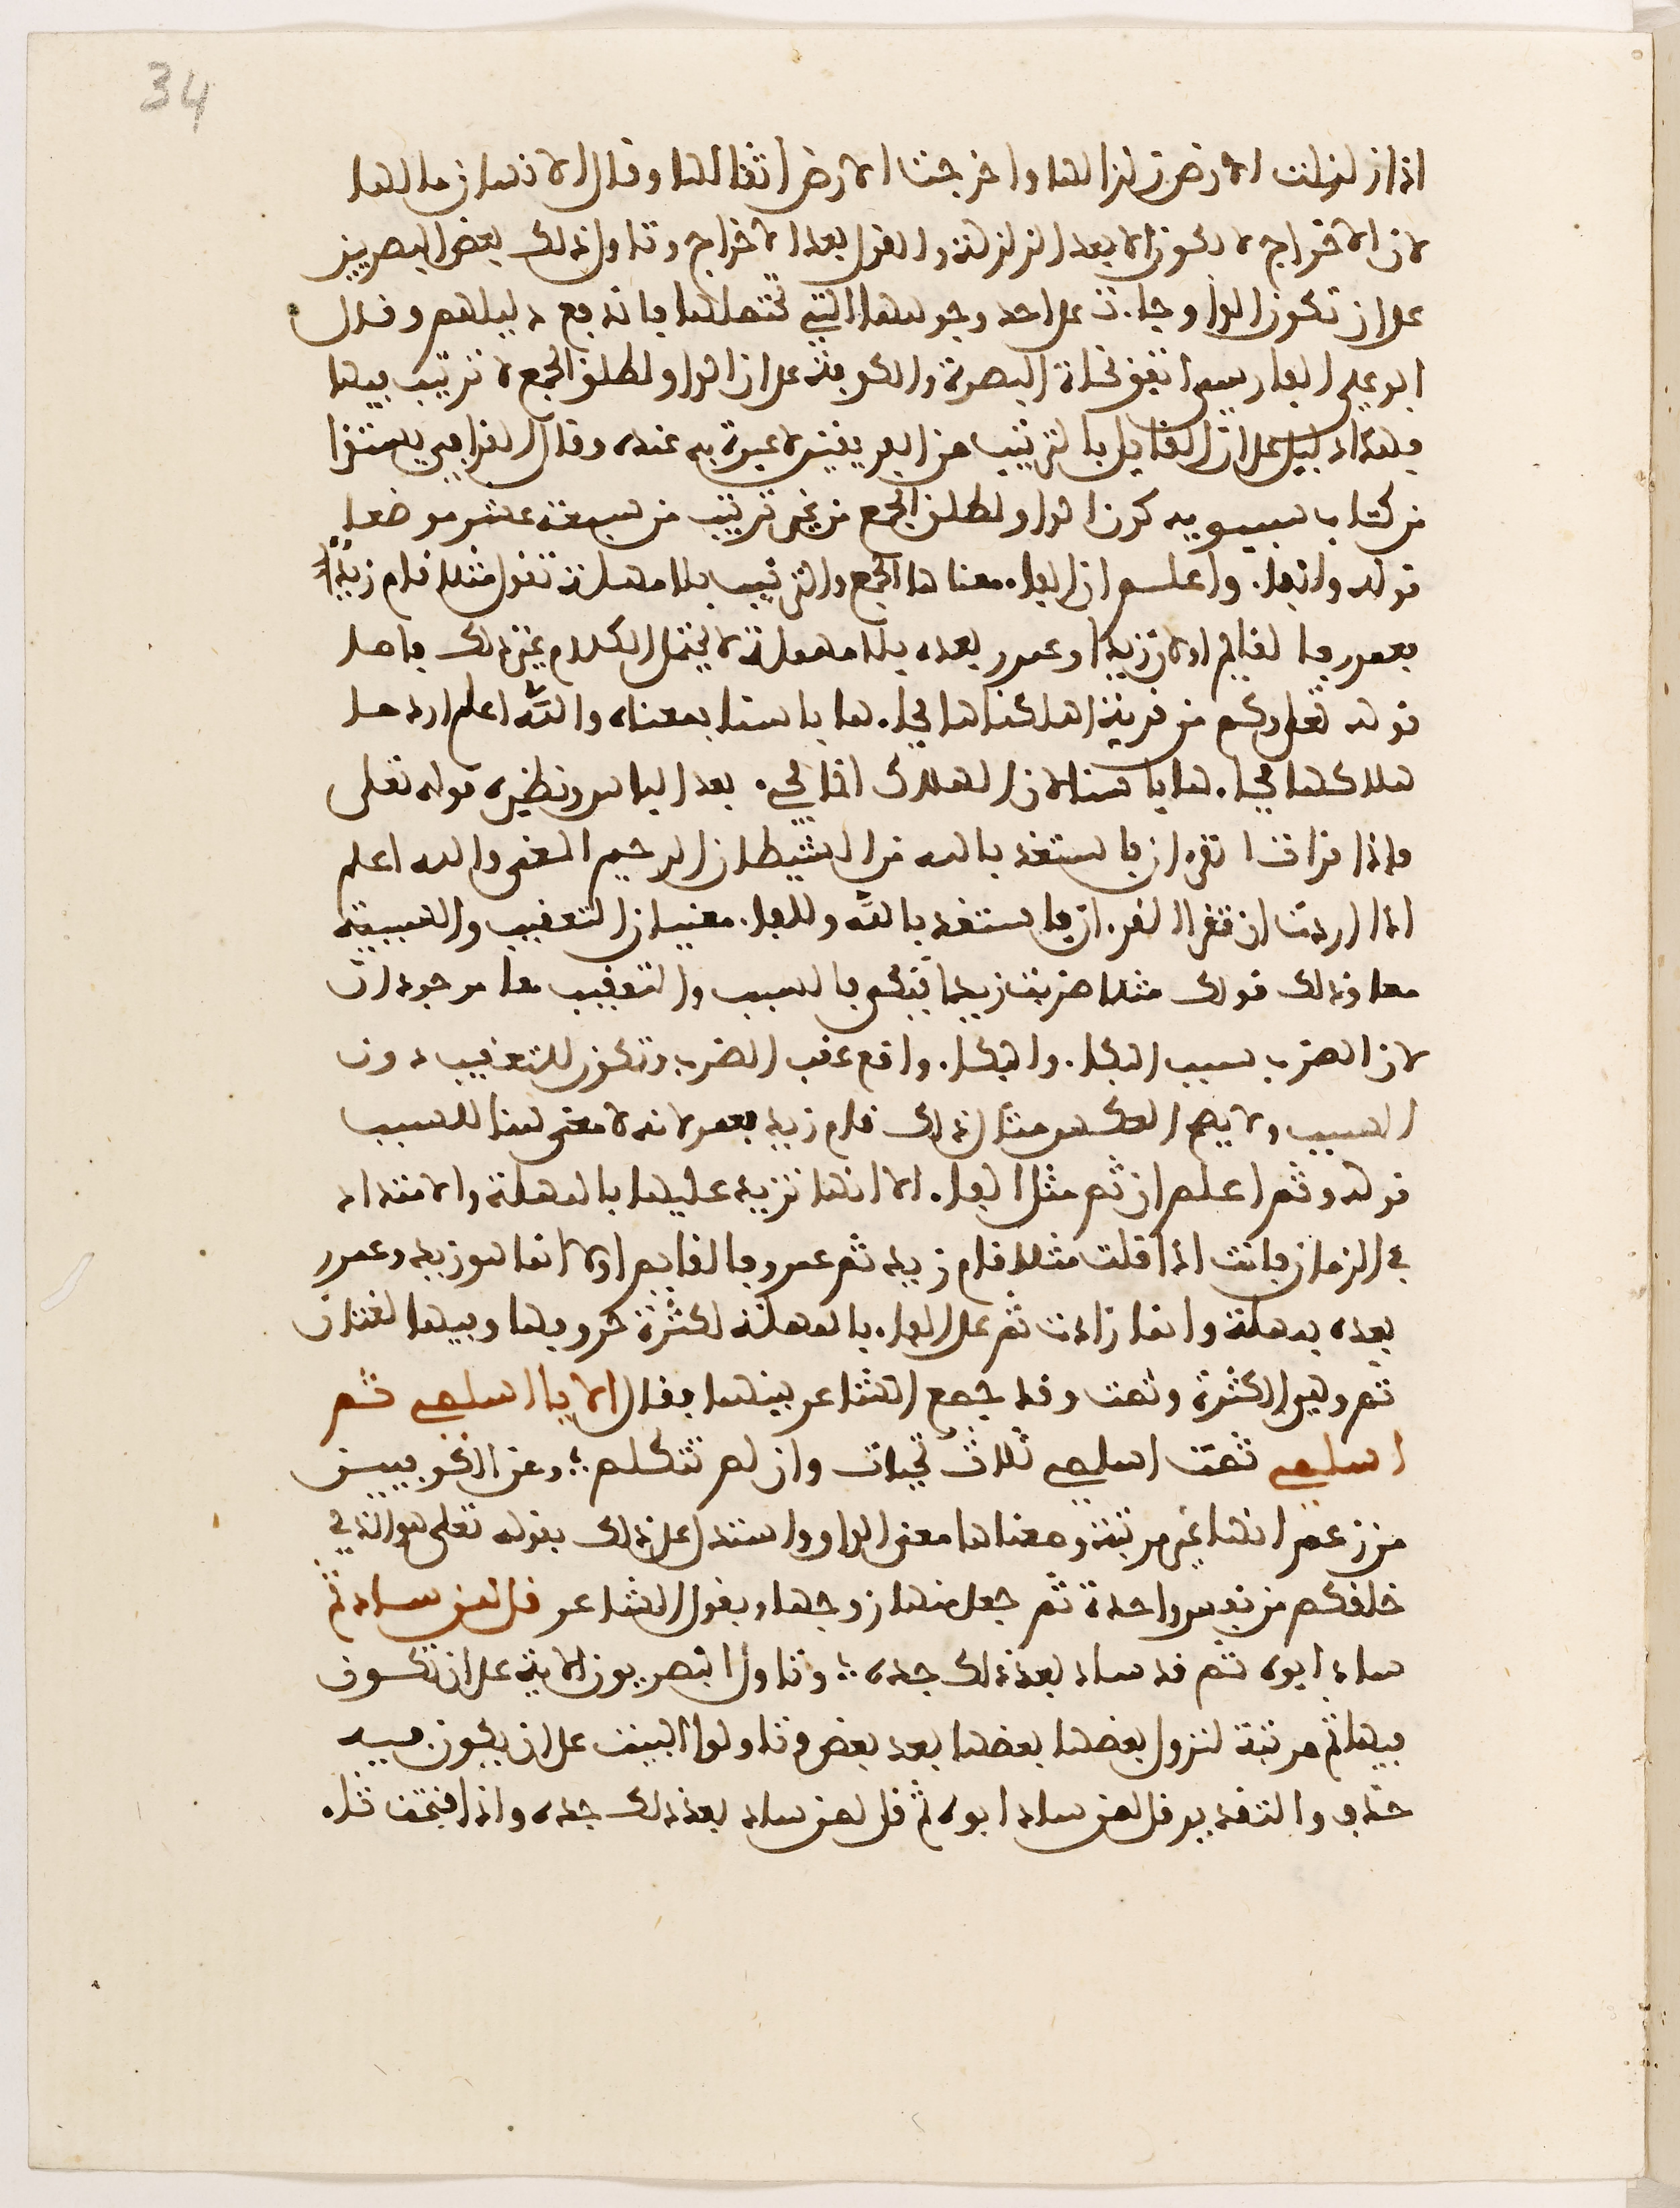 34
اذا زلزلت الارض زلزالها واخرجت الارض اثقالها وقال الانسان ما لها
لان الاخراج لا يكون الا بعد الزلزلة والقول بعد الاخراج وتاول ذلك بعض البصريين
على ان تكون الواو جاءت على احد وجوهها التي تحتملها فاندفع دليلهم وقال
ابو علي الفارسي اتفق نحاة البصرة والكوفة على ان الواو لمطلق الجمع لا ترتيب فيها
فهذا دليل على ان القايل بالترتيب من الفريقين لا عبرة به عنده وقال القرافي يستقرا
من كتاب سيبويه كون الواو لمطلق الجمع من غير ترتيب من سبعة عشر موضعا
قوله والفاء واعلم ان الفاء معناها الجمع والترتيب بلا مهلة تقول مثلا قام زيد
فعمرو فالقايم اولا زيد وعمرو بعده بلا مهلة لا يحتمل الكلام غير ذلك فاما
قوله تعلى وكم من قرية اهلكناها فجاءها باسنا فمعناه والله اعلم اردنا
هلاكها فجاءها باسنا لان الهلاك انما يجيء بعد الباس ونظيره قوله تعلى
فاذا قرات القرءان فاستعذ بالله من الشيطان الرجيم المعنى والله اعلم
اذا اردت ان تقرا القرءان فاستعذ بالله وللفاء معنيان التعقيب والسببية
معا وذلك قولك مثلا ضربت زيدا فبكى فالسبب والتعقيب معا موجودان
لان الضرب سبب البكاء والبكاء واقع عقب الضرب وتكون للتعقيب دون
السبب ولا يصح العكس مثال ذلك قام زيد فعمرو لانه لا معنى هنا للسبب
قوله وثم اعلم ان ثم مثل الفاء الا انها تزيد عليها بالمهلة والامتداد
في الزمان فانت اذا قلت مثلا قام زيد ثم عمرو فالقايم اولا انما هو زيد وعمرو
بعده بمهلة وانما زادت ثم على الفاء بالمهلة لكثرة حروفها وفيها لغتان
ثم وهي الكثيرة وثمت وقد جمع الشاعر بينهما فقال الا يا اسلمي ثم
اسلمي ثمت اسلمي ثلاث تحيات وان لم تتكلم ؛ وعن الكوفيين
من زعم انها غير مرتبة ومعناها معنى الواو واستدل على ذلك بقوله تعلى هو الذي
خلقكم من نفس واحدة ثم جعل منها زوجها وبقول الشاعر قل لمن ساد ثم
ساد ابوه ثم قد ساد بعد ذلك جده ؛ وتاول البصريون الاية على ان تكون
فيها ثم مرتبة لنزول بعضها بعد بعض وتاولوا البيت على ان يكون فيه
حذف والتقدير قل لمن ساد ابوه ثم قل لمن ساد بعد ذلك جده واذا فتحت ثاء